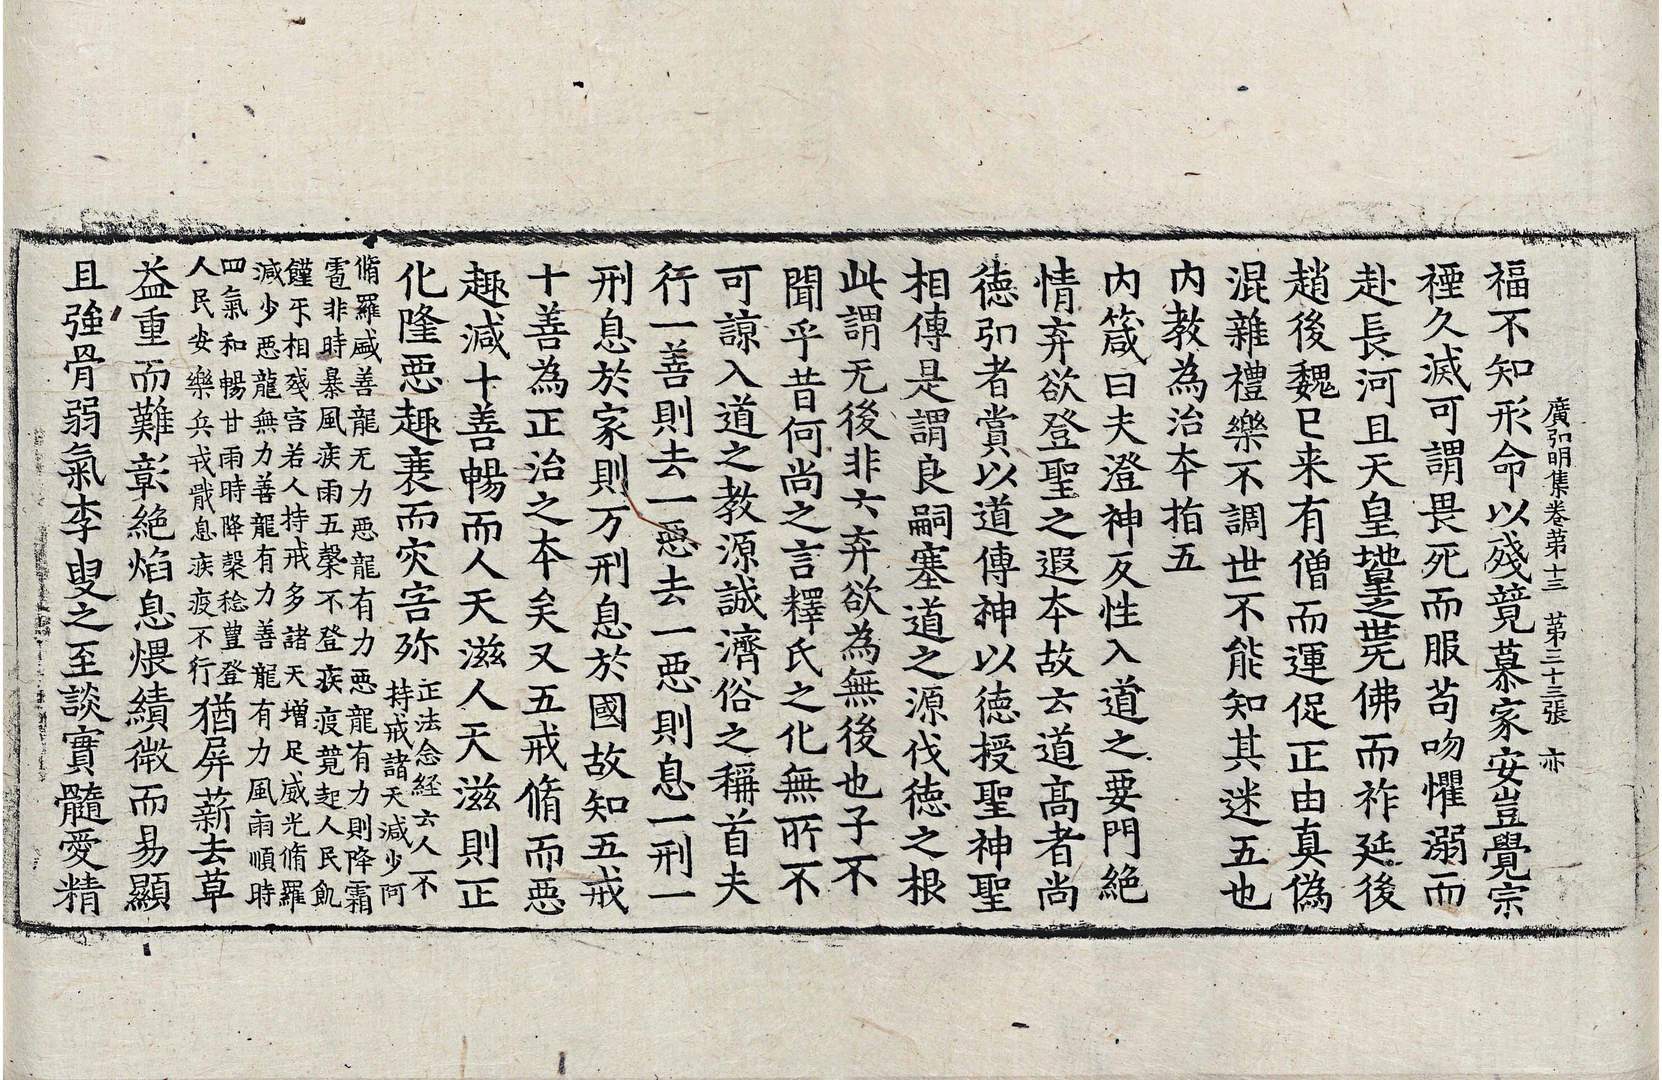 廣弘明集卷第十三　第三十三張　亦
福不知形命以殘竟慕家安豈覺宗
禋久滅可謂畏死而服苟吻懼溺而
赴長河且天皇地皇之世无佛而祚延後
趙後魏已来有僧而運促正由真偽
混雜禮樂不調世不能知其迷五也
内教為治本指五
内箴曰夫澄神反性入道之要門絕
情弃欲登聖之遐本故云道高者尚
德弘者賞以道傳神以德授聖神聖
相傳是謂良嗣塞道之源伐德之根
此謂无後非云弃欲為無後也子不
聞乎昔何尚之言釋氏之化無所不
可諒入道之教源誠濟俗之稱首夫
行一善則去一惡去一惡則息一刑一
刑息於家則万刑息於國故知五戒
十善為正治之本矣又五戒脩而惡
趣減十善暢而人天滋人天滋則正
化隆惡趣衰而灾害弥
正法念經云人不
持戒諸天減少阿
脩羅盛善龍无力惡龍有力惡龍有力則降霜
雹非時暴風疾雨五糓不登疾疫競起人民飢
饉互相殘害若人持戒多諸天增足威光脩羅
減少惡龍無力善龍有力善龍有力風雨順時
四氣和暢甘雨時降糓稔豐登
人民安樂兵戎戢息疾疫不行
猶屏薪去草
益重而難彰絕焰息煨績微而易顯
且強骨弱氣李叟之至談實髓愛精